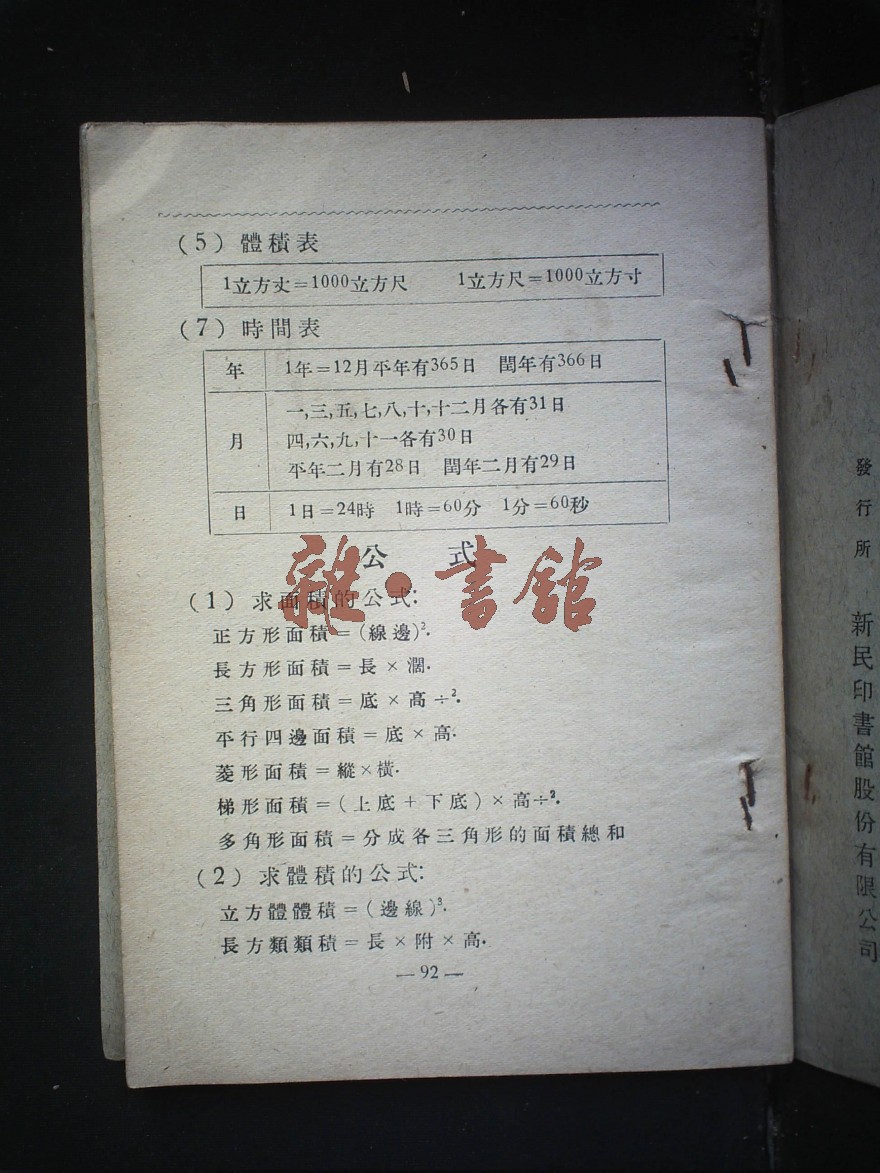 (5) 體積表
1立方丈=1000立方尺 1立方尺=1000立方寸
(7) 時間表
年 1年=12月平年有365日 閏年有366日
一,三,五,七,八,十,十二月各有31日
月 四,六,九,十一各有30日
平年二月有28日 閏年二月有29日
日 1日=24時 1時=60分 1分=60秒
公 式
雜·書館
(1) 求面積的公式:
正方形面積=(線邊)².
長方形面積=長×濶.
三角形面積=底×高÷².
平行四邊面積=底×高.
菱形面積=縱×橫.
梯形面積=(上底+下底)×高÷².
多角形面積=分成各三角形的面積總和
(2) 求體積的公式:
立方體體積=(邊線)³.
長方類類積=長×附×高.
—92—
發行所 新民印書館股份有限公司